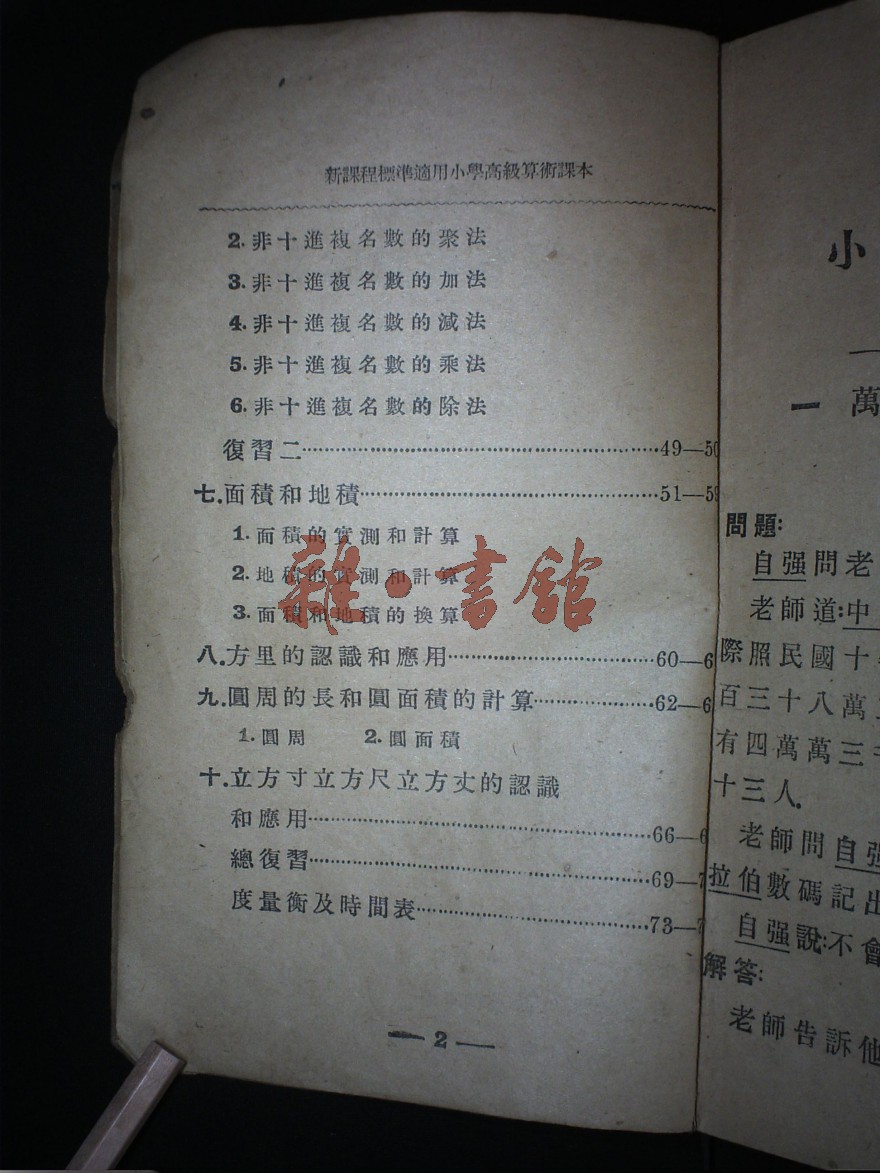 新課程標準適用小學高級算術課本
2. 非十進複名數的聚法
3. 非十進複名數的加法
4. 非十進複名數的減法
5. 非十進複名數的乘法
6. 非十進複名數的除法
復習二……49—50
七.面積和地積……51—59
1. 面積的實測和計算
2. 地積的實測和計算
3. 面積和地積的換算
八.方里的認識和應用……60—6
九.圓周的長和圓面積的計算……62—6
1. 圓周 2. 圓面積
十.立方寸立方尺立方丈的認識
和應用……66—6
總復習……69—7
度量衡及時間表……73—7
— 2 —
雜·書館
小
一 萬
問題:
自强問老
老師道:中
際照民國十
百三十八萬
有四萬萬三
十三人.
老師問自强
拉伯數碼記出
自强說:不會
解答:
老師告訴他